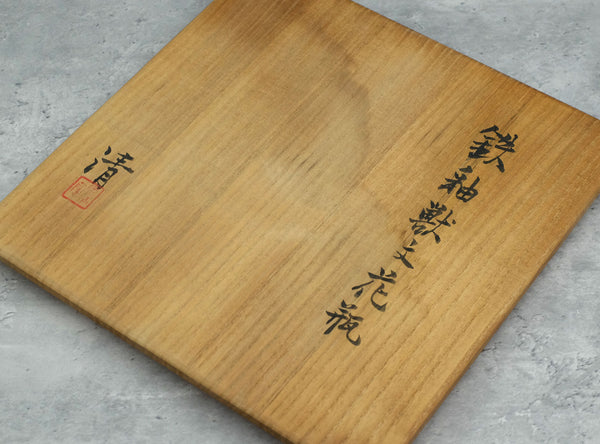 鉄釉獣文花瓶
清